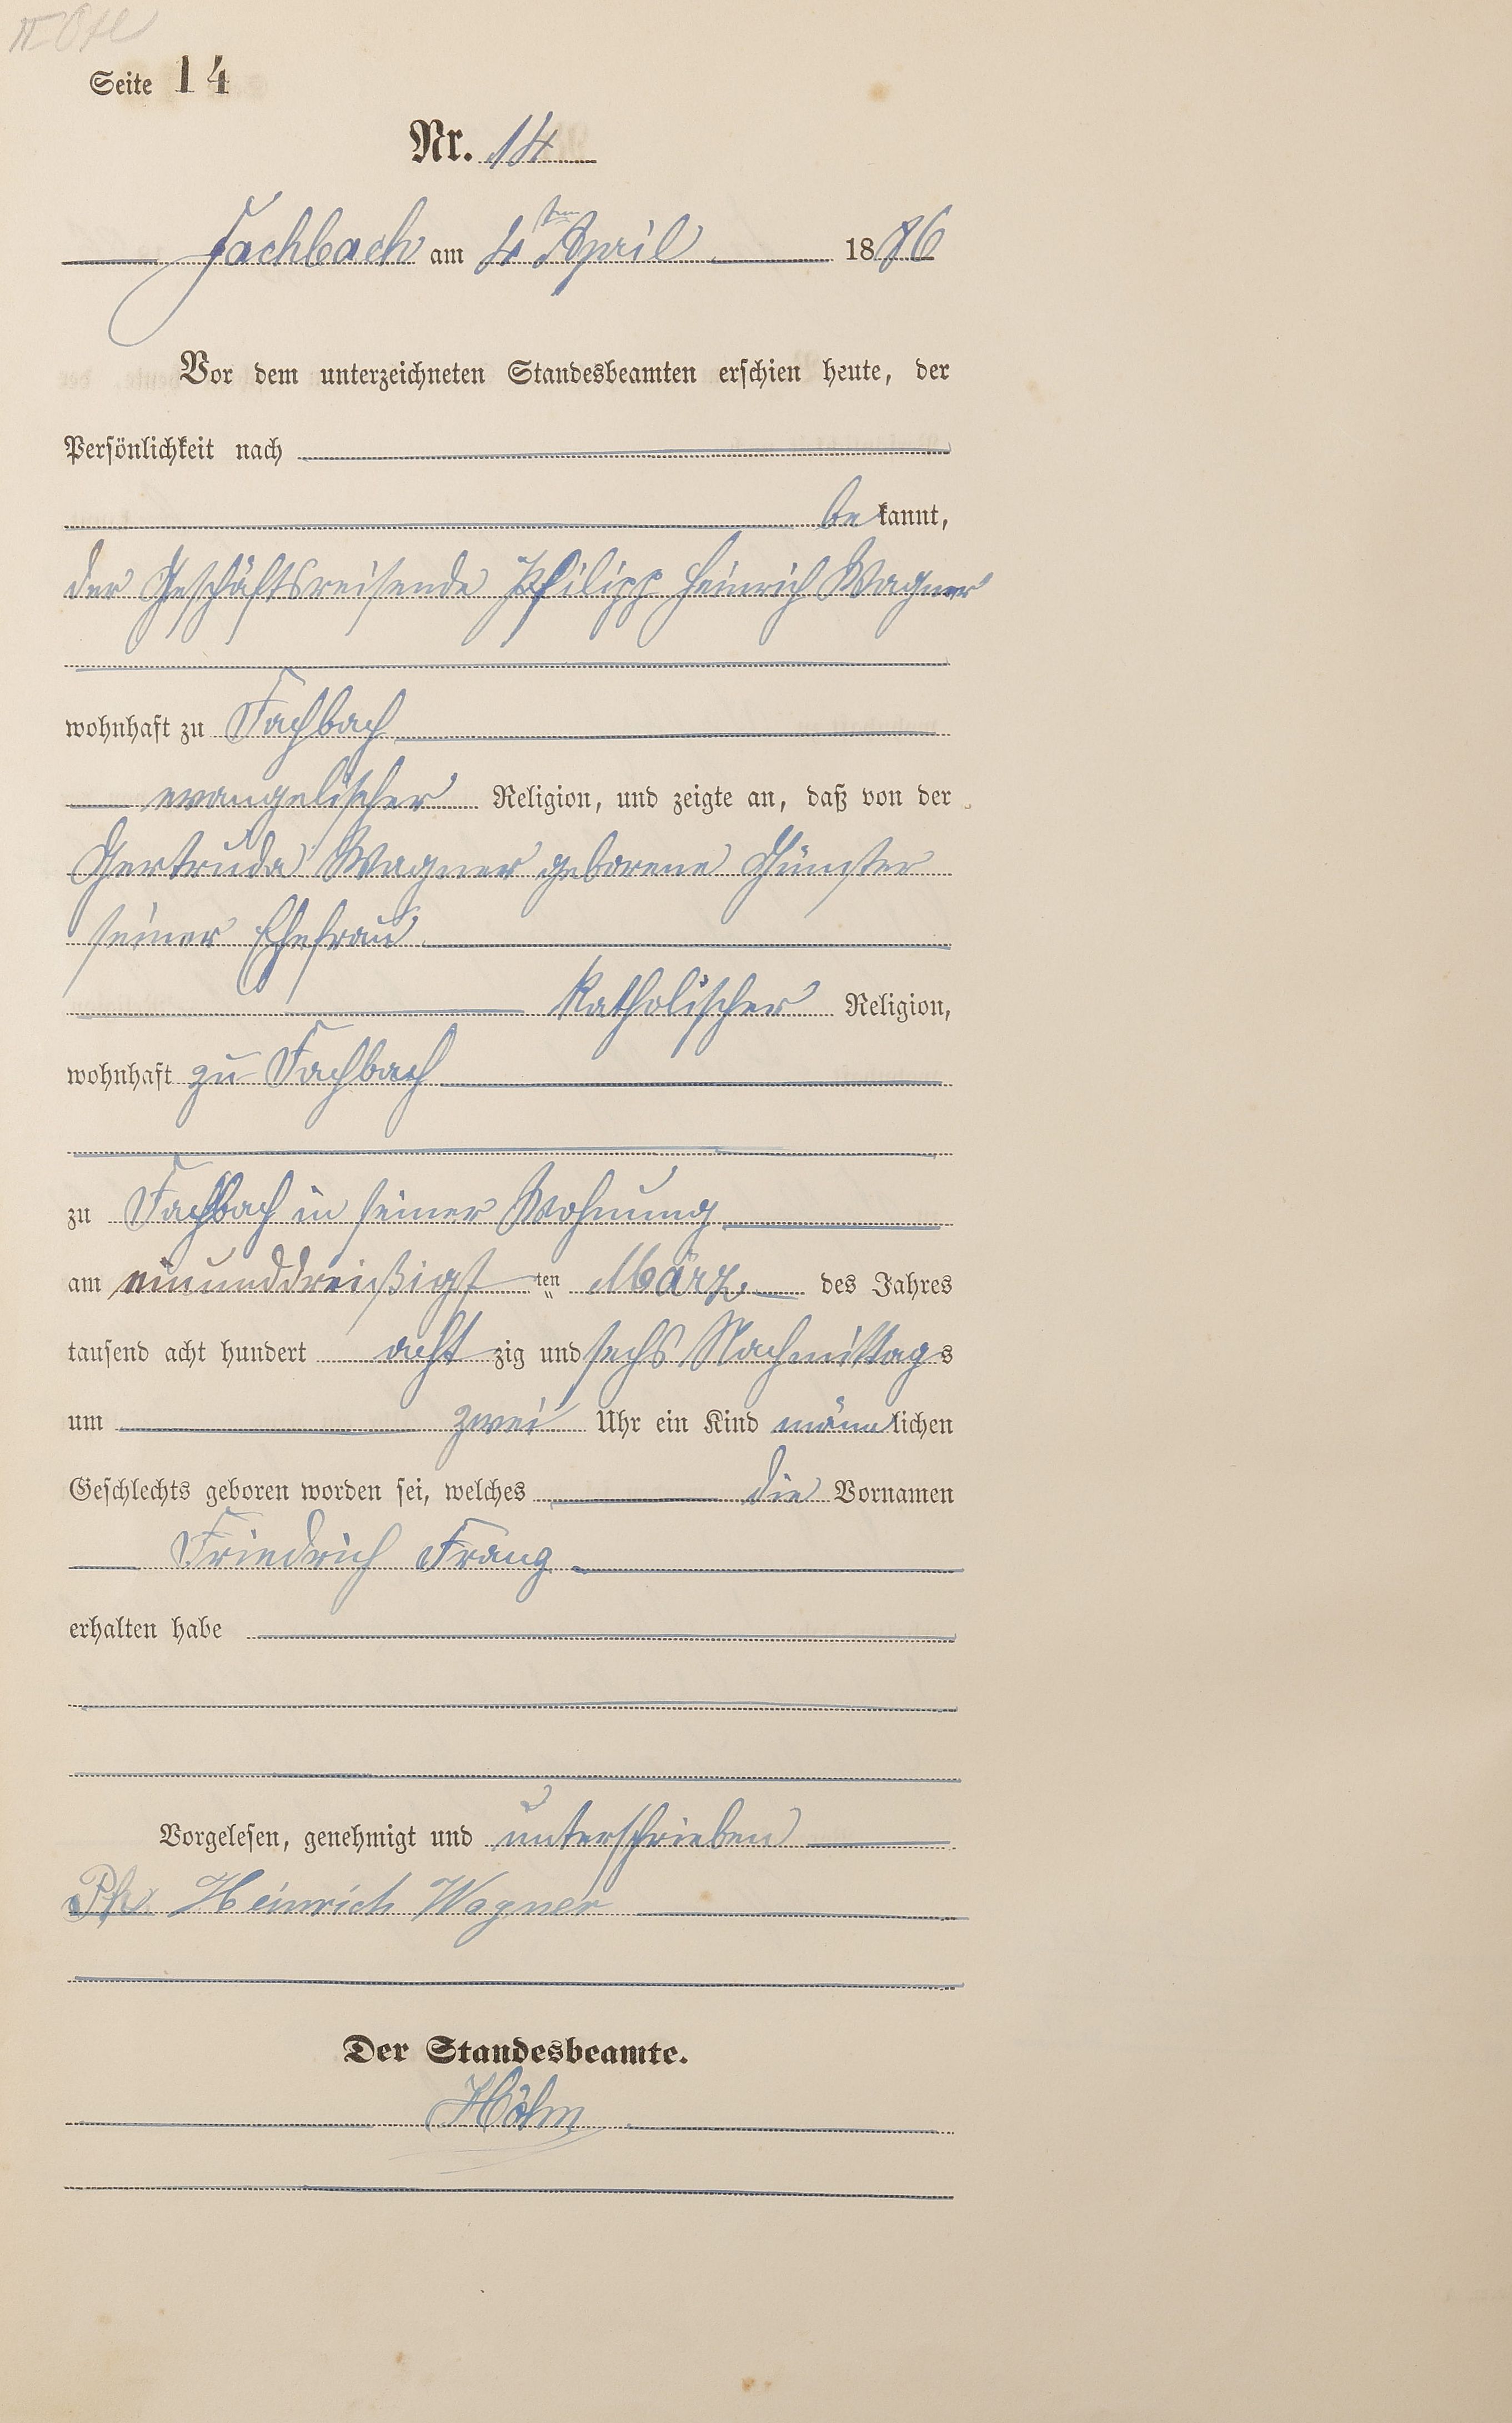 Seite 14
Nr. 14
Fachbach am 4ten April 1886
Vor dem unterzeichneten Standesbeamten erschien heute, der
Persönlichkeit nach
bekannt,
der Geschäftsreisende Philipp Heinrich Wagner
wohnhaft zu Fachbach
evangelischer Religion, und zeigte an, daß von der
Gertruda Wagner geborene
seiner Ehefrau
katholischer Religion,
wohnhaft zu Fachbach
zu Fachbach in seiner Wohnung
am einunddreißigsten März des Jahres
tausend acht hundert achtzig und sechs Nachmittags
um zwei Uhr ein Kind männlichen
Geschlechts geboren worden sei, welches die Vornamen
Friedrich Franz
erhalten habe
Vorgelesen, genehmigt und unterschrieben
Ph. Heinrich Wagner
Der Standesbeamte.